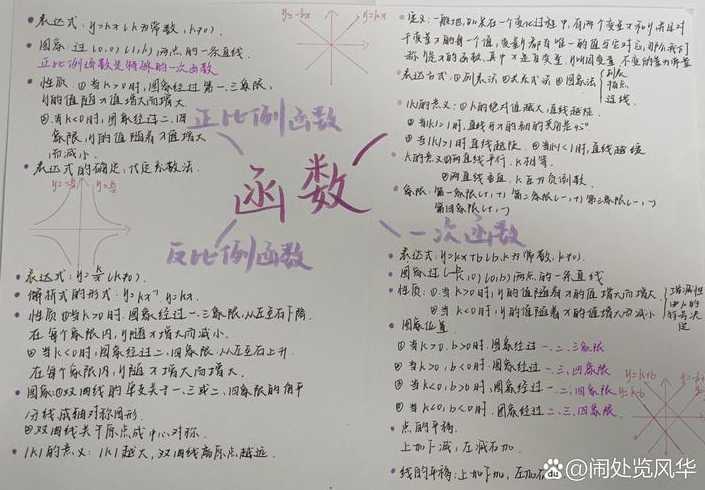 表达式:y=kx(k为常数,k≠0).
图象 过(0,0)(1,k)两点的一条直线
正比例函数是特殊的一次函数
性质:①当k>0时,图象经过第一.三象限,
y的值随x值增大而增大
②当k<0时,图象经过二.四
象限,y的值随着x值增大
而减小.
表达式的确定,待定系数法.
y=-kx
y=kx
正比例函数
函数
反比例函数
一次函数
表达式:y=k/x(k≠0).
解析式的形式:y=kx⁻¹
性质 ①当k>0时,图象经过一.三象限,从左至右下降.
在每个象限内,y随x增大而减小.
②当k<0时,图象经过二.四象限,从左至右上升.
在每个象限内,y随x增大而增大.
图象:①双曲线的
一.三或二.四象限的角平
分线成轴对称图形.
②双曲线关于原点成中心对称.
|k|的意义:|k|越大,双曲线离原点越远.
定义:一般地,如果在一个变化过程中,有两个变量x和y,并且对
于变量x的每一个值,变量y都有唯一的值与它对应,那么我们
称y是x的函数,其中x是自变量,y是因变量
表达方式:①列表法②关系式法③图象法
列表
描点
连线
|k|的意义:①k的绝对值越大,直线越陡.
②当|k|=1时,直线与x的轴的夹角是45°
③当|k|>1时直线越陡.④当|k|<1时,直线越缓
k的意义①两直线平行.k相等.
②两直线垂直.k互为负倒数.
象限:第一象限(+,+) 第二象限(-,+) 第三象限(-,-)
第四象限(+,-)
表达式:y=kx+b(b,k为常数,k≠0).
图象过(-b/k,0)(0,b)两点的一条直线
性质:①当k>0时,y的值随着x的值增大而增大
②当k<0时,y的值随着x的值增大而减小
增减性
由k的
符号决
定
图象位置.
①当k>0.b>0时.图象经过一.二.三象限
②当k>0,b<0时.图象经过一.三.四象限
③当k<0,b>0时.图象经过一.二.四象限
④当k<0,b<0时.图象经过二.三.四象限.
点的平移.
上加下减,左减右加.
线的平移:上加下减,左加右
@闹处览风华